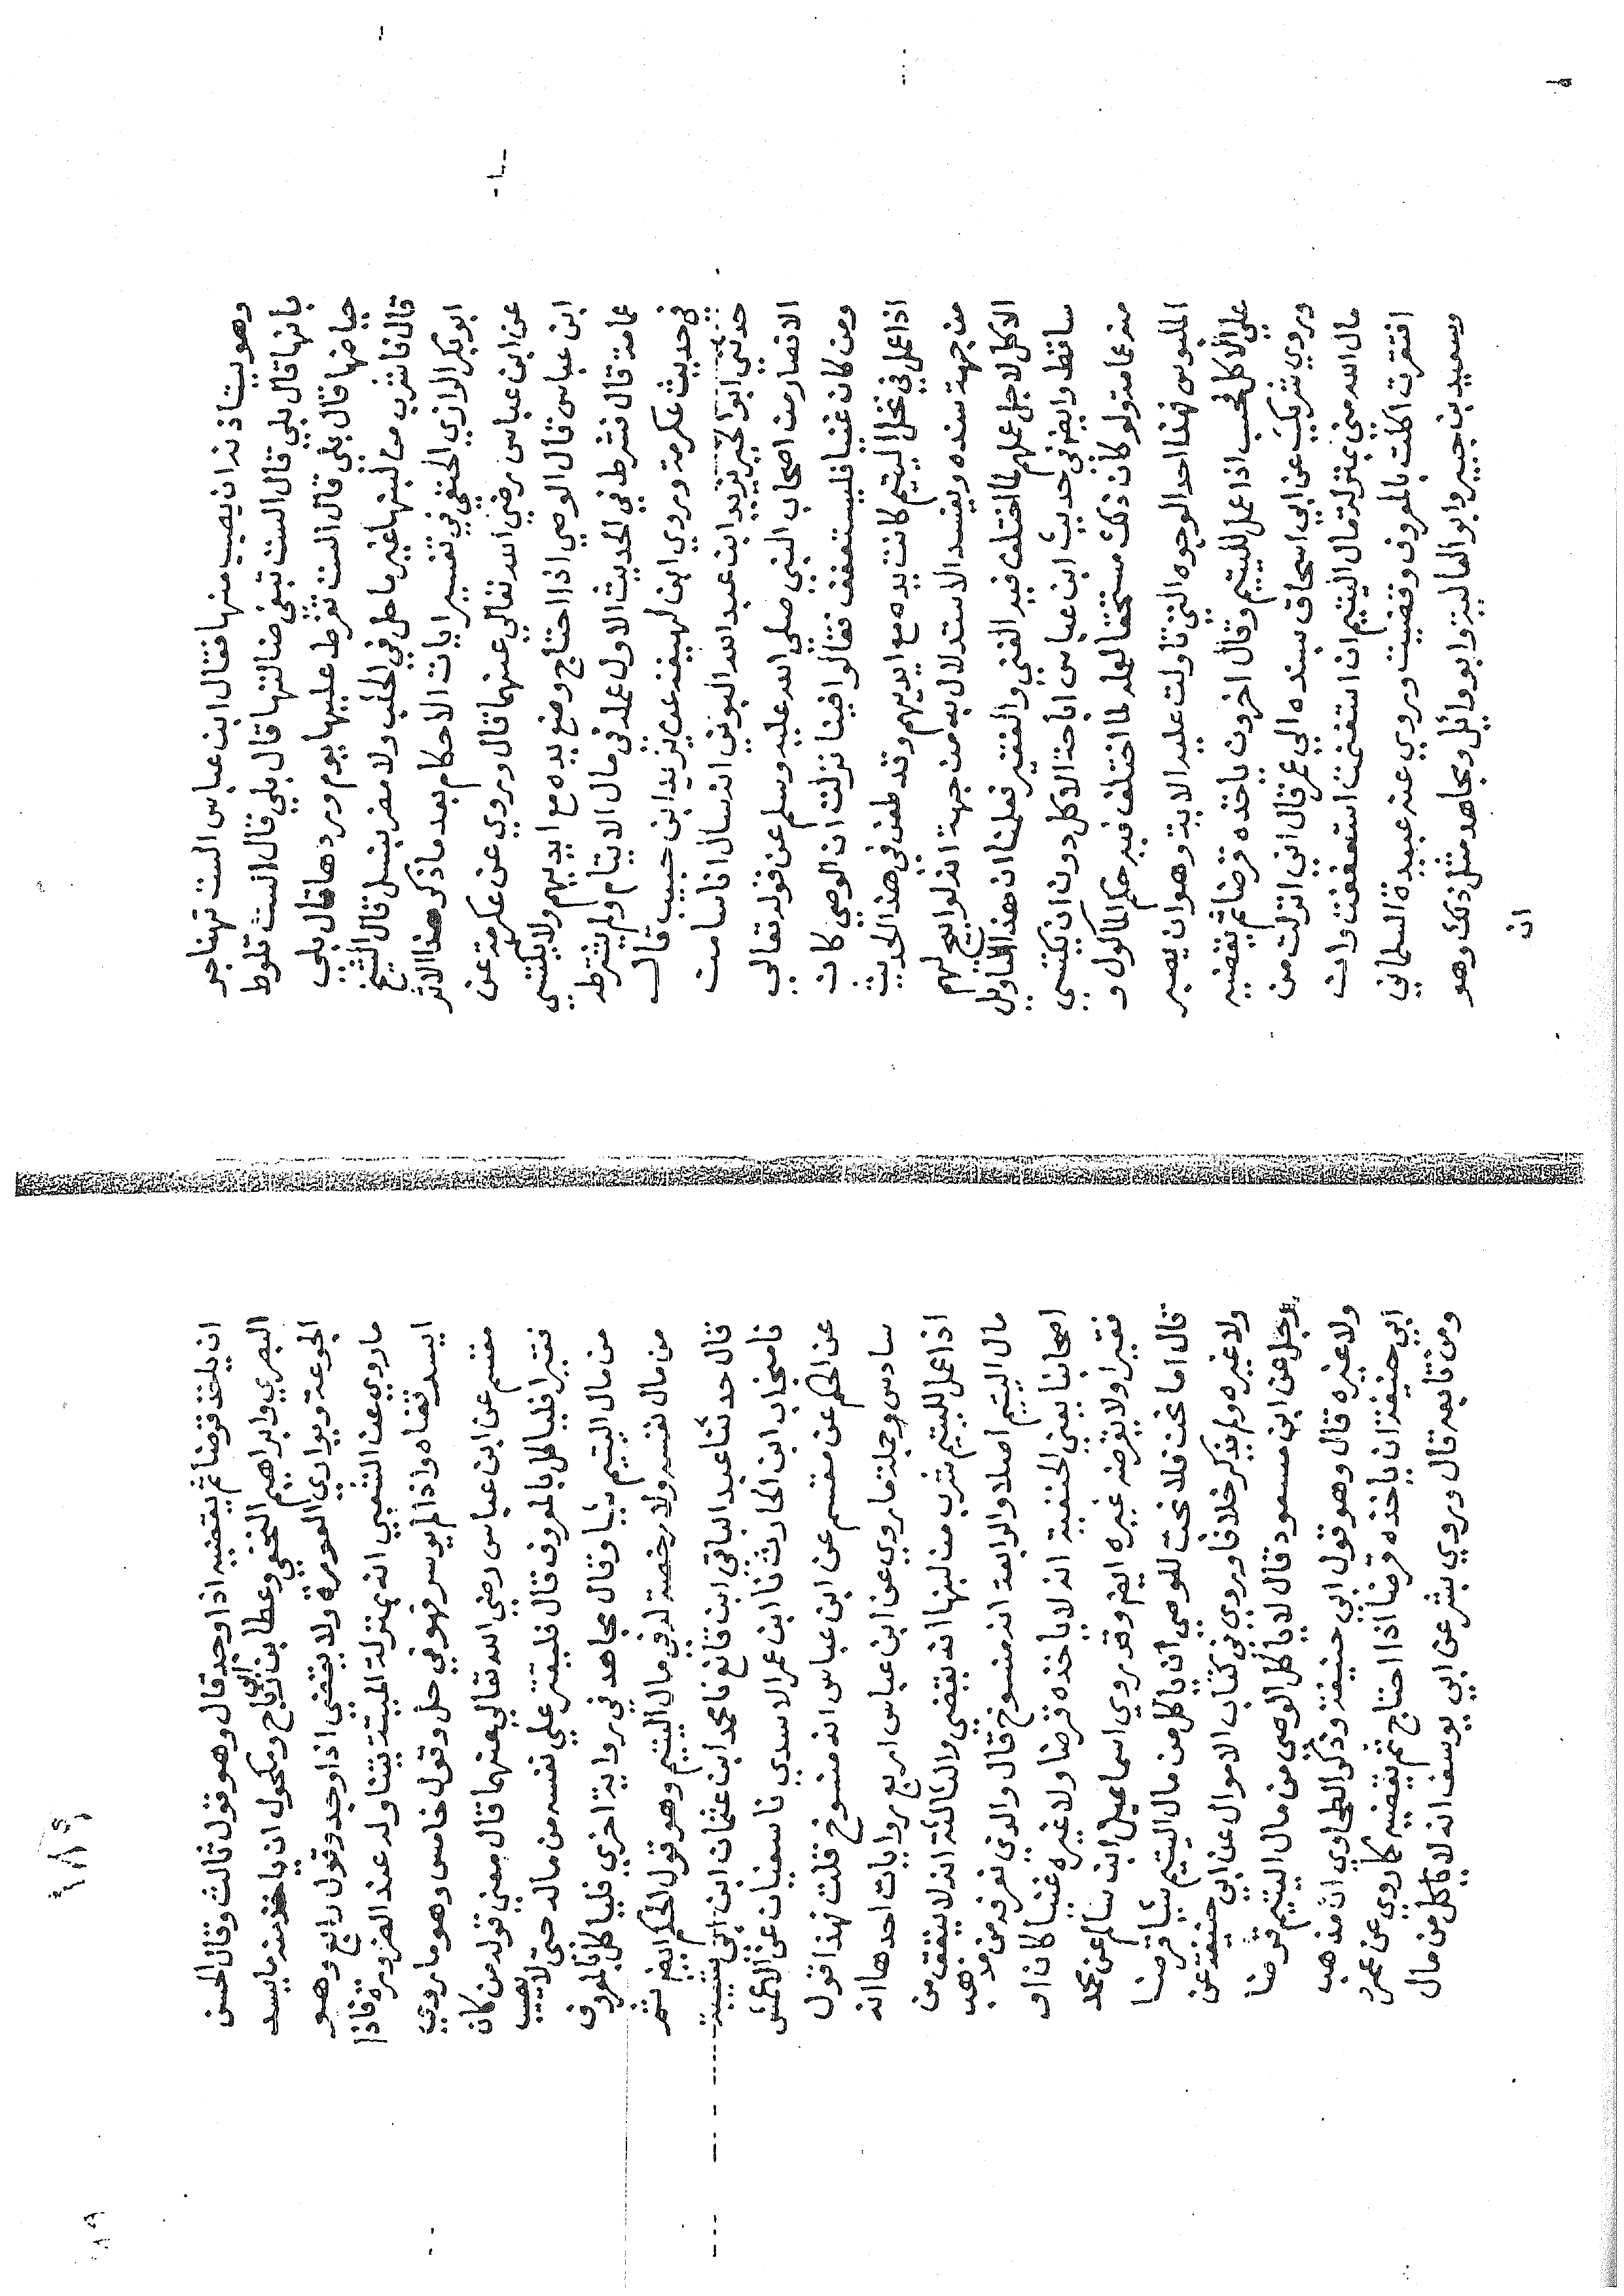 وهو يستاذنه ان يصيب منها فقال ابن عباس الست تهناجر
بانها قال بلي قال الست تبغى ضالتها قال بلي قال الست تلوط
حياضها قال بلي قال الست تفرط عليها يوم وردها قال بلي
قال فاشرب من لبنها غير ناهك في الحلب ولا مضر بنسل قال الشيخ
ابو بكر الرازي الحنفي في تفسير ايات الاحكام بعد ما ذكر هذا الاثر
عن ابن عباس رضي الله تعالي عنهما قال وروي عن عكرمة عن
ابن عباس قال الوصي اذا احتاج وضع يده مع ايديهم ولا يكتسي
عمامة قال فشرط في الحديث الاول عمله في مال الايتام ولم يشترط
في حديث عكرمة وروي ابن لهيعه عن يزيد ابن حبيب قال
حدثني ابو الخير مرثد ابن عبد الله اليزني انه سال اناسا من
الانصار من اصحاب النبي صلي الله عليه وسلم عن قوله تعالي
ومن كان غنيا فليستعفف فقالوا فينا نزلت ان الوصي كان
اذا عمل في نخل اليتيم كانت يده مع ايديهم وقد طعن في هذ الحديث
من جهة سنده ويفسد الاستدلال به من جهة انه لو ابيح لهم
الاكل لاجل عملهم لما اختلف فيه الغني والفقير فعلمنا ان هذا التاويل
ساقط وايضا في حديث ابن عباس اباحة الاكل دون ان يكتسي
منه عمامة ولو كان ذلك مستحقا لعمله لما اختلف فيه حكم الماكول و
الملبوس فهذا احد الوجوه التي تاولت عليه الاية وهو ان يصير
علي الاكل فحسب اذا عمل لليتيم وقال اخرون ياخذه قرضا ثم يقضيه
وروي شريك عن ابي اسحاق بسنده الي عمر قال اني انزلت من
مال الله مني بمنزلة مال اليتيم ان استغنيت استعففت وان
افتقرت اكلت بالمعروف وقضيت وروي عنه عبيدة السلماني
وسعيد بن جبير وابو العالية وابو وائل ومجاهد مثل ذلك وهو
ان
ان ياخذ قرضا ثم يقضيه اذا وجد قال وهو قول ثالث وقال الحسن
البصري وابراهيم النخعي وعطا بن ابي رباح ومكحول ان ياخذ منه ما يسد
الجوعة ويواري العورة ولا يقضي اذا وجد وقول رابع وهو
ما روي عن الشعبي انه بمنزلة الميتة يتناوله عند الضرورة فاذا
ايسر قضاه واذا لم يوسر فهو في حل وقول خامس وهو ما روي
مقسم عن ابن عباس رضي الله تعالي عنهما قال معني قوله من كان
فقيرا فلياكل بالمعروف قال فليقتر علي نفسه من ماله حتى لا يصيب
من مال اليتيم شيا وقال مجاهد في رواية اخري فلياكل بالمعروف
من مال نفسه ولا رخصة له في مال اليتيم وهو قول الحكم ايضا ثم
قال حدثنا عبد الباقي ابن قانع نا محمد ابن عثمان ابن ابي شيبة
نا منجاب ابن الحارث نا ابن عمر الاسدي نا سفيان عن الاعمش
عن الحكم عن مقسم عن ابن عباس انه منسوخ قلت فهذا قول
سادس وجملة ما روي عن ابن عباس اربع روايات احدها انه
اذا عمل لليتيم شرب من لبنها انه يقضي والثالثة انه لا ينفق من
مال اليتيم اصلا والرابعة انه منسوخ قال والذي نعرفه من مذهب
اصحابنا يعني الحنفية انه لا ياخذه قرضا ولا غيره غنيا كان او
فقيرا ولا يقرضه غيره ايضا وقد روي اسماعيل ابن سالم عن محمد
قال اما نحن فلا نحب للوصي ان ياكل من مال اليتيم شيا قرضا
ولا غيره ولم يذكر خلافا وروي في كتاب الاموال عن ابي حنيفة عن
رجل عن ابن مسعود قال لا ياكل الوصي من مال اليتيم قرضا
ولا غيره قال وهو قول ابي حنيفة وذكر الطحاوي ان مذهب
ابي حنيفة ان ياخذه قرضا اذا احتاج ثم يقضيه كما روي عن عمر
ومن تابعه قال وروي بشر عن ابي يوسف انه لا ياكل من مال